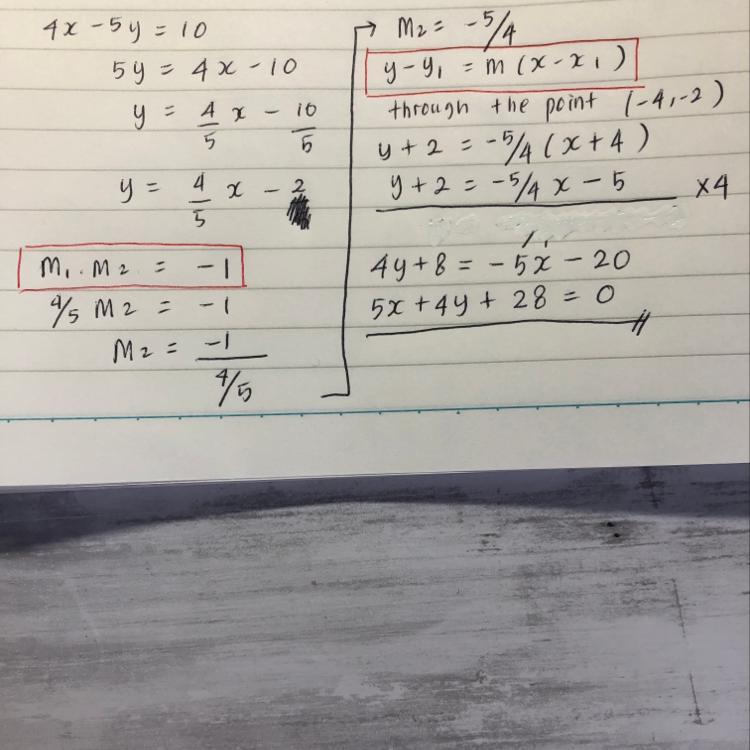 4x - 5y = 10
5y = 4x - 10
y = 4/5 x - 10/5
y = 4/5 x - 2
M₁ . M₂ = -1
4/5 M₂ = -1
M₂ = -1 / 4/5
→ M₂ = -5/4
y - y₁ = m (x - x₁)
through the point (-4, -2)
y + 2 = -5/4 (x + 4)
y + 2 = -5/4 x - 5 ×4
4y + 8 = -5x - 20
5x + 4y + 28 = 0 //